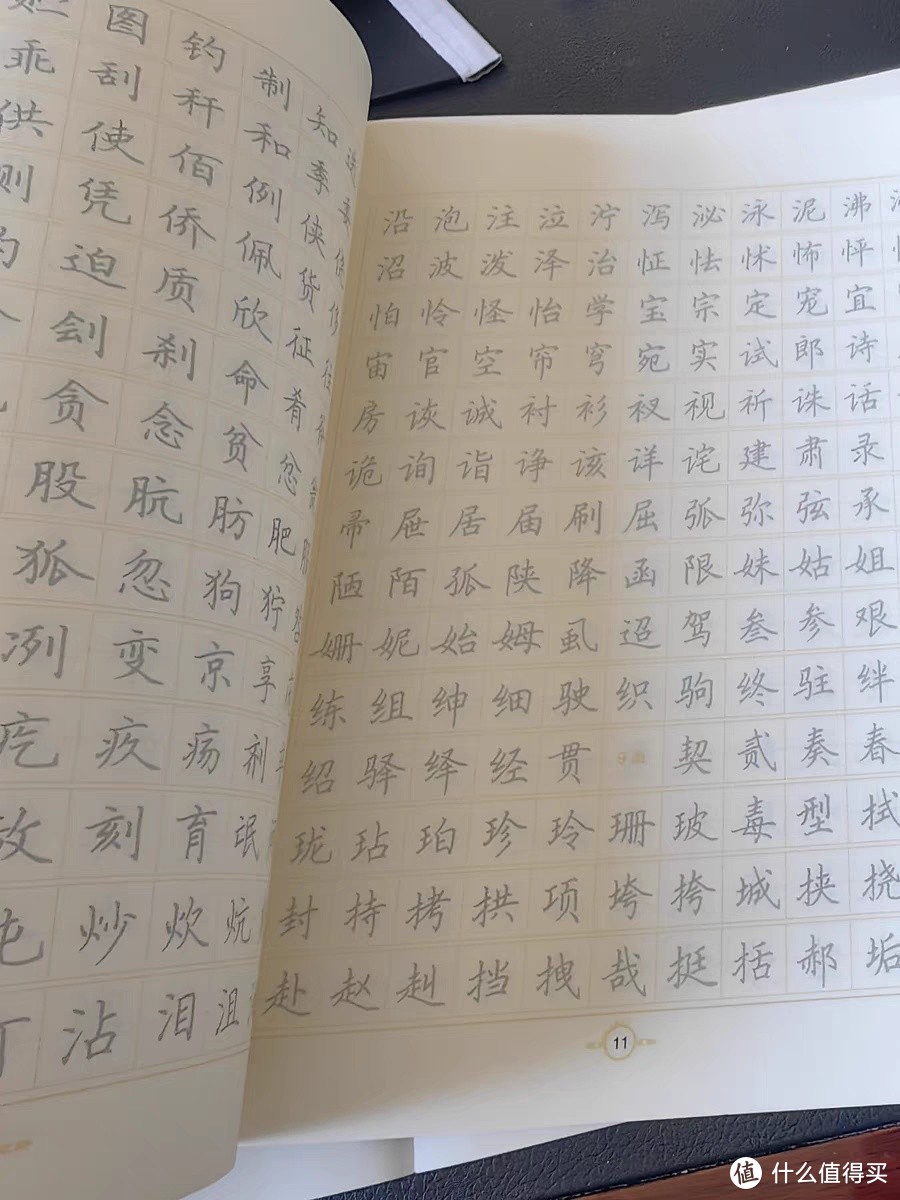 图 钓 制 知
乖 刮 秆 和 季
供 使 佰 例 侠
则 凭 侨 佩 货
迫 质 欣 征
刽 刹 命 肴
贪 念 贫 忿
股 肮 肪 肥
狐 忽 狗 狞
冽 变 京 享
疙 疚 疡 剂
放 刻 育 氓
炖 炒 炊 炕
沾 泪 沮
沿 泡 注 泣 泞 泻 泌 泳 泥 沸
沼 波 泼 泽 治 怔 怯 怵 怖 怦
怕 怜 怪 怡 学 宝 宗 定 宠 宜
宙 官 空 帘 穹 宛 实 试 郎 诗
房 诙 诚 衬 衫 衩 视 祈 诛 话
诡 询 诣 诤 该 详 诧 建 肃 录
帚 屉 居 届 刷 屈 弧 弥 弦 承
陋 陌 孤 陕 降 函 限 妹 姑 姐
姗 妮 始 姆 虱 迢 驾 叁 参 艰
练 组 绅 细 驶 织 驹 终 驻 绊
绍 驿 绎 经 贯 9画 契 贰 奏 春
珑 玷 珀 珍 玲 珊 玻 毒 型 拭
封 持 拷 拱 项 垮 挎 城 挟 挠
赴 赵 赳 挡 拽 哉 挺 括 郝 垢
11
值 什么值得买